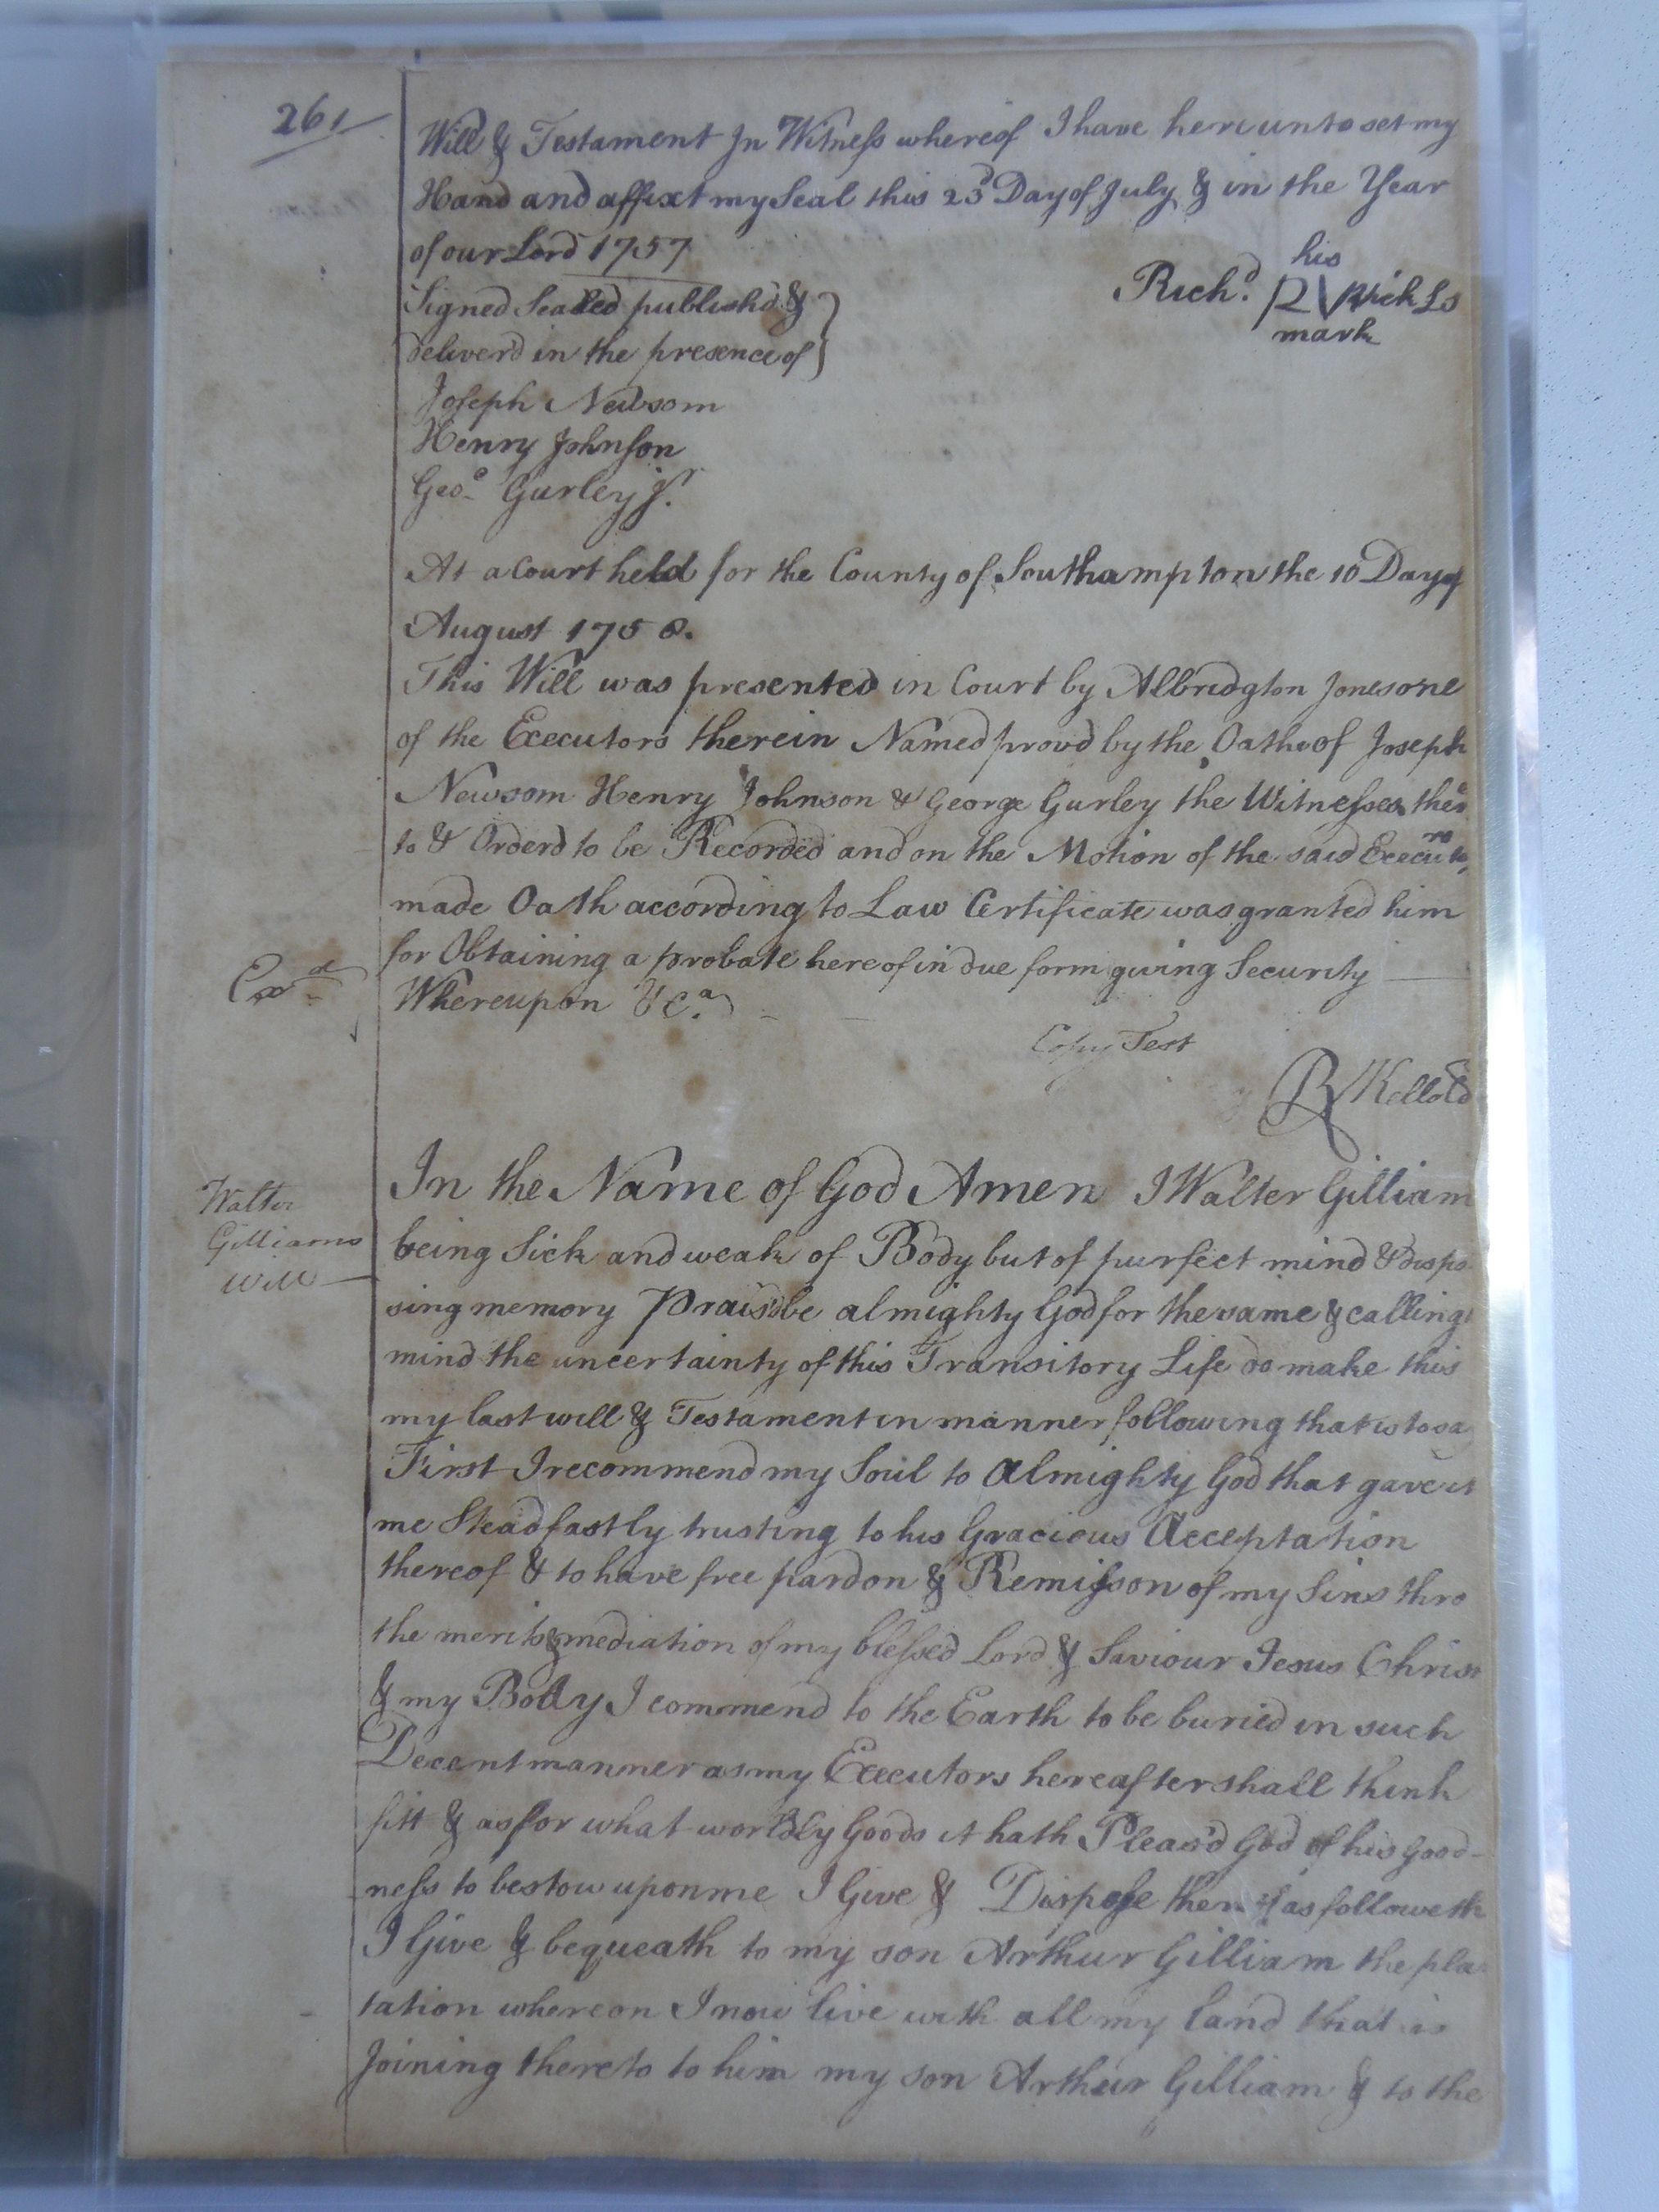 261
Will & Testament In Witness whereof I have hereunto set my
Hand and affixt my Seal this 23d Day of July & in the Year
of our Lord 1757
his
Signed Sealed publish'd &
Richd. R Ls
deliver'd in the presence of
mark
Joseph Newsom
Henry Johnson
Geoe Gurley Jr.
At a Court held for the County of Southampton the 10 Day of
August 1758.
This Will was presented in Court by Albridgton Jones one
of the Executors therein Named prov'd by the Oaths of Joseph
Newsom Henry Johnson & George Gurley the Witnesses there
to & Orderd to be Recorded and on the Motion of the said Executor
made Oath according to Law Certificate was granted him
for Obtaining a probate hereof in due form giving Security
Exd
Whereupon &ca.
Copy Test
R Kello Cd
In the Name of God Amen I Walter Gilliam
Walter
Gilliams
Will
being Sick and weak of Body but of purfect mind & dispo
sing memory Praisd be almighty God for the same & calling
mind the uncertainty of this Transitory Life do make this
my last will & Testament in manner following that is to sa
First I recommend my Soul to Almighty God that gave it
me Steadfastly trusting to his Gracious Acceptation
thereof & to have free pardon & Remisson of my Sins thro
the merits & mediation of my blessed Lord & Saviour Jesus Christ
& my Body I commend to the Earth to be buried in such
Decent manner as my Executors hereafter shall think
fitt & as for what worldly Goods it hath Pleas'd God of his good-
ness to bestow upon me I Give & Dispose them as followeth
I Give & bequeath to my son Arthur Gilliam the pla
tation whereon I now live with all my land that is
Joining thereto to him my son Arthur Gilliam & to the